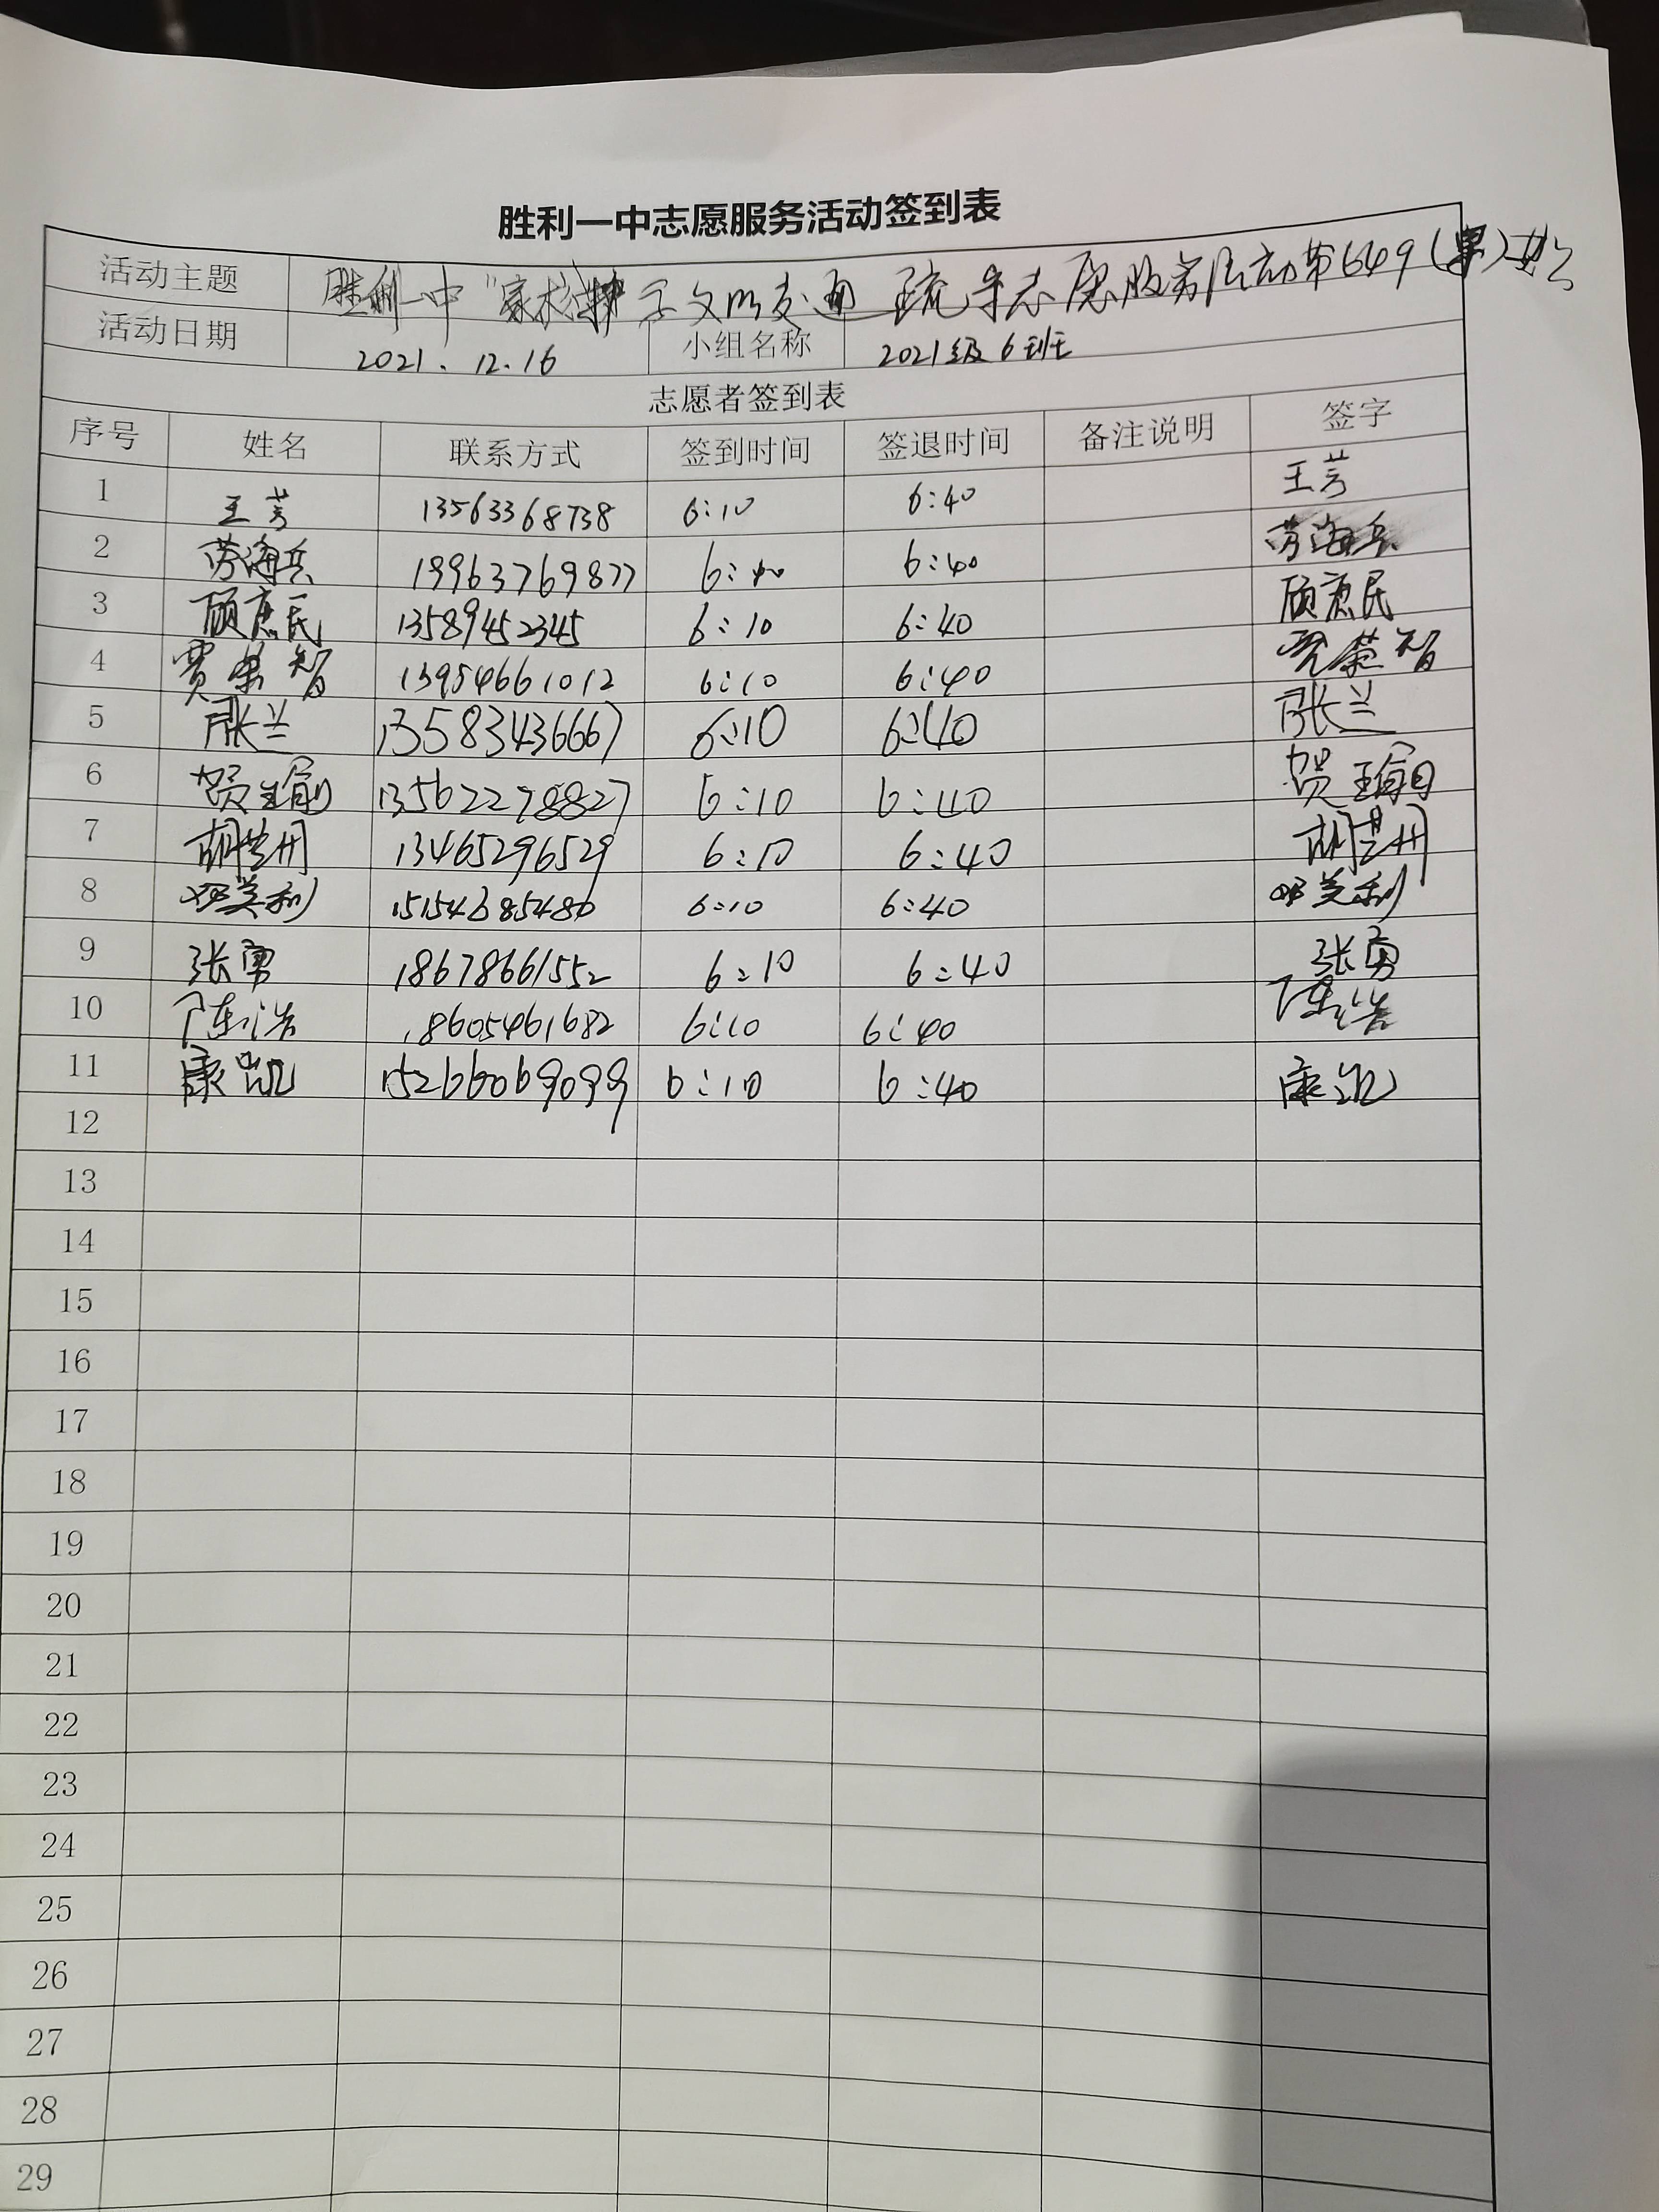 胜利一中志愿服务活动签到表
活动主题 胜利一中"家校 文明交通疏导志愿服务活动第649(
活动日期 2021.12.16 小组名称 2021级6班
志愿者签到表
序号 姓名 联系方式 签到时间 签退时间 备注说明 签字
1 王芳 13563368738 6:10 6:40 王芳
2 劳海兵 19963769877 6:40 劳海兵
3 顾庶民 13589452345 6:10 6:40 顾庶民
4 贾荣智 13954661012 6:10 6:40 贾荣智
5 张兰 13583436667 6:10 6:40 张兰
6 贺 13562278827 6:10 6:40 贺
7 胡 13465296529 6:10 6:40 胡
8 邓美利 15154685480 6:10 6:40 邓美利
9 张勇 18678661552 6:10 6:40 张勇
10 陈浩 18605461682 6:10 6:40 陈浩
11 康凯 15266069099 6:10 6:40 康凯
12
13
14
15
16
17
18
19
20
21
22
23
24
25
26
27
28
29